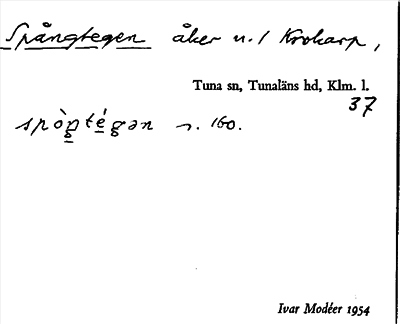 Spångtegen åker n. / Krokarp,
Tuna sn, Tunaläns hd, Klm. l.
37
spòŋtégən n. 160.
Ivar Modéer 1954